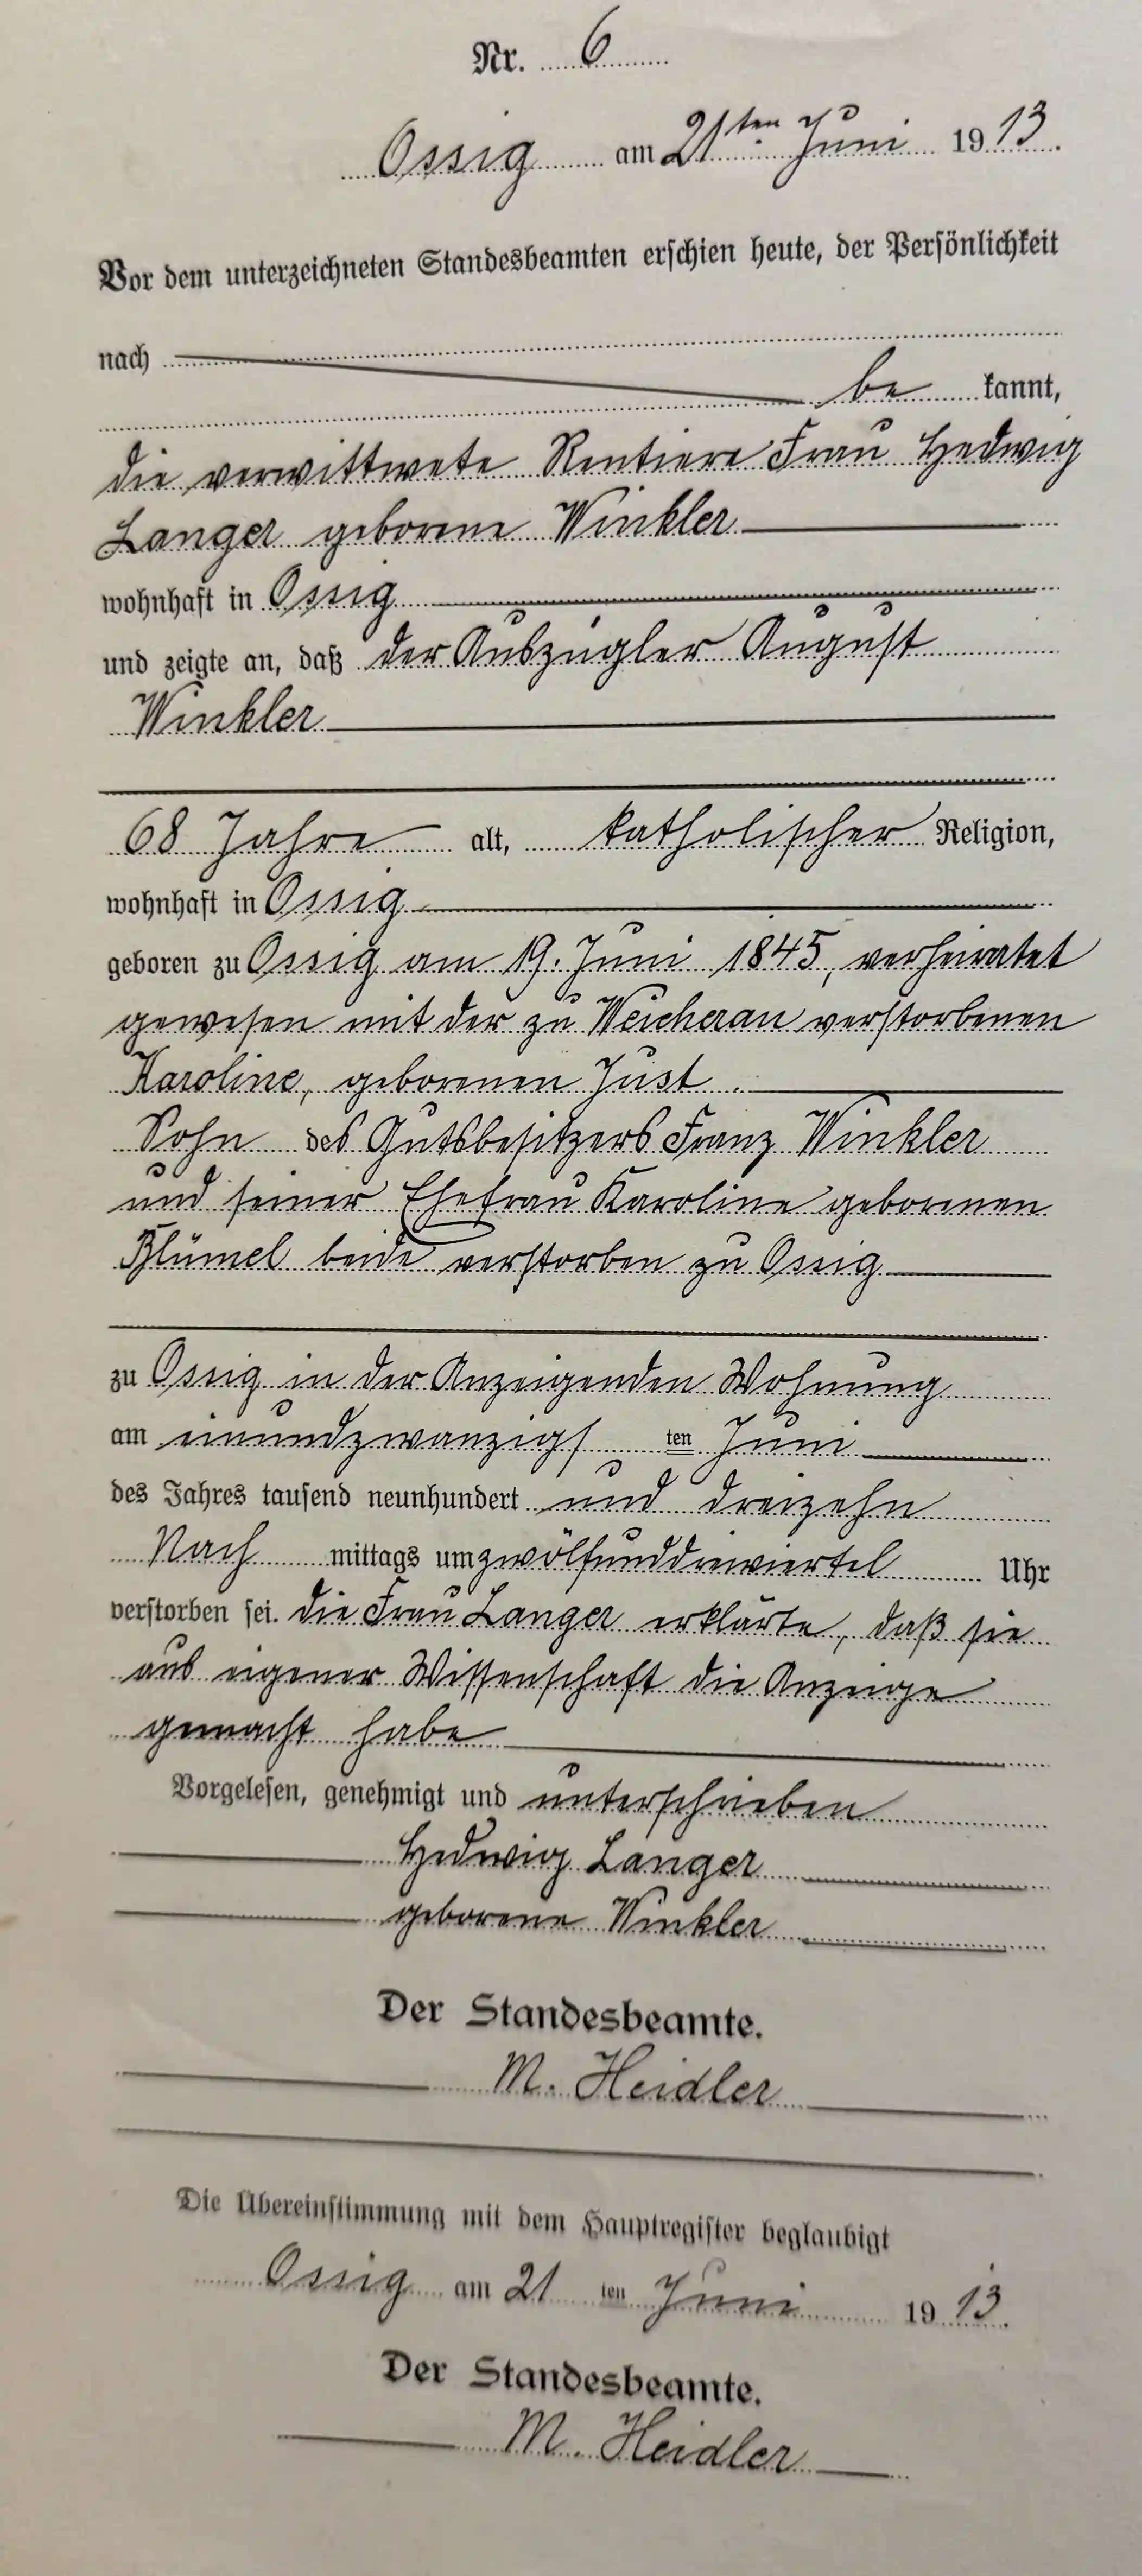 Nr. 6
Ossig am 21ten Juni 1913.
Vor dem unterzeichneten Standesbeamten erschien heute, der Persönlichkeit
nach
be kannt,
die verwittwete Rentiere Frau Hedwig
Langer geborene Winkler
wohnhaft in Ossig
und zeigte an, daß der Auszügler August
Winkler
68 Jahre alt, katholischer Religion,
wohnhaft in Ossig
geboren zu Ossig am 19. Juni 1845, verheiratet
gewesen mit der zu Weicherau verstorbenen
Karoline, geborenen Just.
Sohn des Gutsbesitzers Franz Winkler
und seiner Ehefrau Karoline geborenen
Blümel beide verstorben zu Ossig
zu Ossig in der Anzeigenden Wohnung
am einundzwanzigsten Juni
des Jahres tausend neunhundert und dreizehn
Nach mittags um zwölfunddreiviertel Uhr
verstorben sei. Die Frau Langer erklärte, daß sie
aus eigener Wissenschaft die Anzeige
gemacht habe
Vorgelesen, genehmigt und unterschrieben
Hedwig Langer
geborene Winkler
Der Standesbeamte.
M. Heidler
Die Übereinstimmung mit dem Hauptregister beglaubigt
Ossig am 21 ten Juni 1913.
Der Standesbeamte.
M. Heidler